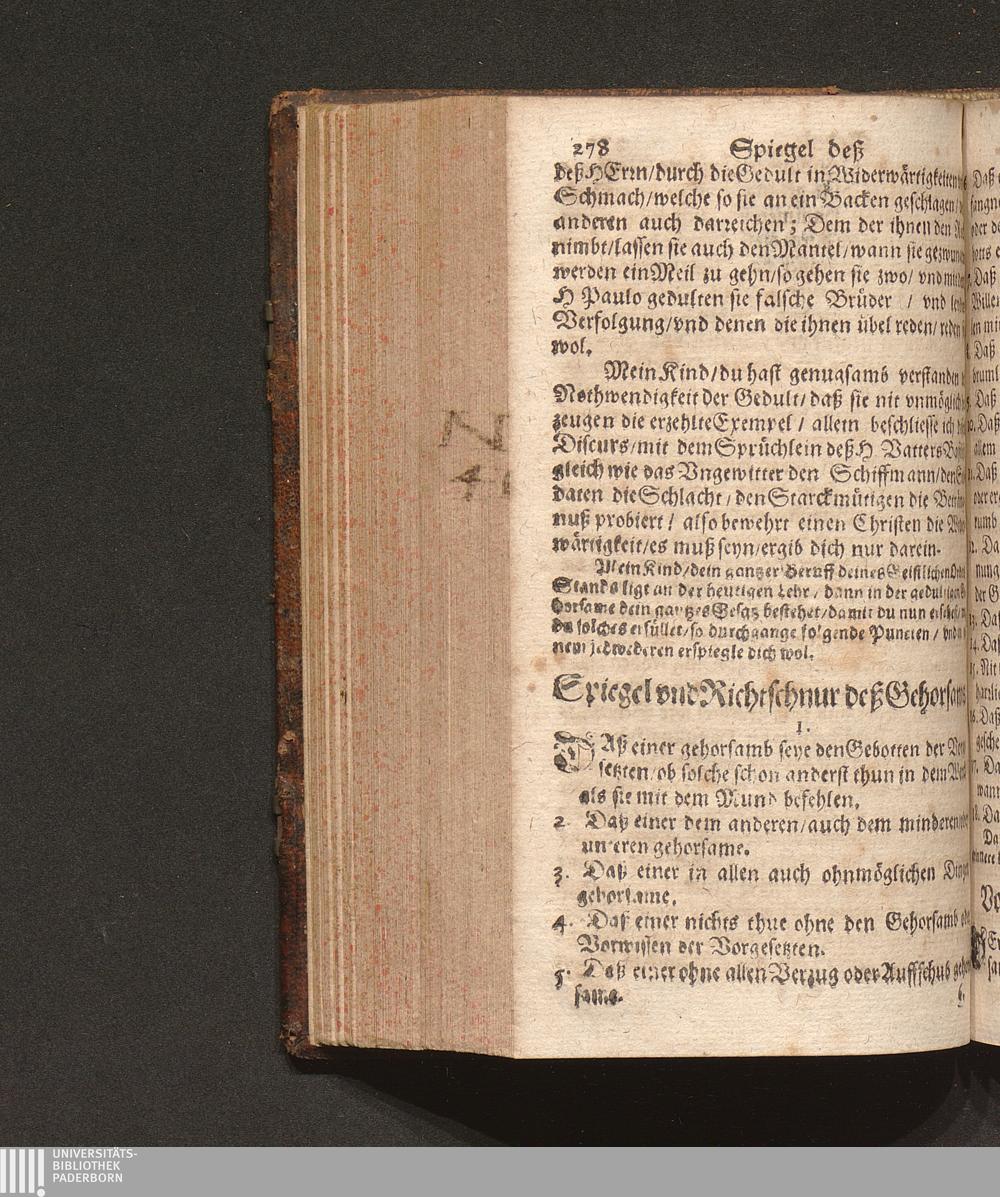 278 Spiegel deß
deß HErrn/durch die Gedult in Widerwärtigkeiten
Schmach/welche so sie an ein Backen geschlagen/
anderen auch darreichen; Dem der ihnen den
nimbt/lassen sie auch den Mantel/wann sie gezwun
werden ein Meil zu gehn/so gehen sie zwo/ vnd mit
H Paulo gedulten sie falsche Brüder / vnd
Verfolgung/vnd denen die ihnen übel reden/ reden
wol.
Mein Kind/du hast genugsamb verstanden
Nothwendigkeit der Gedult/ daß sie nit vnmöglich
zeugen die erzehlte Exempel / allein beschliesse ich
Discurs/mit dem Sprüchlein deß H Vatters
gleich wie das Vngewitter den Schiffmann/den
daten die Schlacht/den Starckmütigen die
nuß probiert / also bewehrt einen Christen die
wärtigkeit/es muß seyn/ergib dich nur darein.
Mein Kind/dein gantzer Beruff deines Geistlichen
Stands ligt an der heutigen Lehr/ dann in der gedultigen
horsame dein gantzes Gesatz bestehet/damit du nun
du solches erfüllet/so durchgange folgende Puncten/ vnd
nem jedwederen erspiegle dich wol.
Spiegel vnd Richtschnur deß Gehorsams
1.
DAß einer gehorsamb seye den Gebotten der
setzten/ob solche schon anderst thun in dem
als sie mit dem Mund befehlen.
2. Daß einer dem anderen/auch dem minderen
unteren gehorsame.
3. Daß einer in allen auch ohnmöglichen Dingen
gehorsame.
4. Daß einer nichts thue ohne den Gehorsamb
Vorwissen der Vorgesetzten.
5. Daß einer ohne allen Verzug oder Auffschub
same.
6.
N
4
UNIVERSITÄTS-
BIBLIOTHEK
PADERBORN